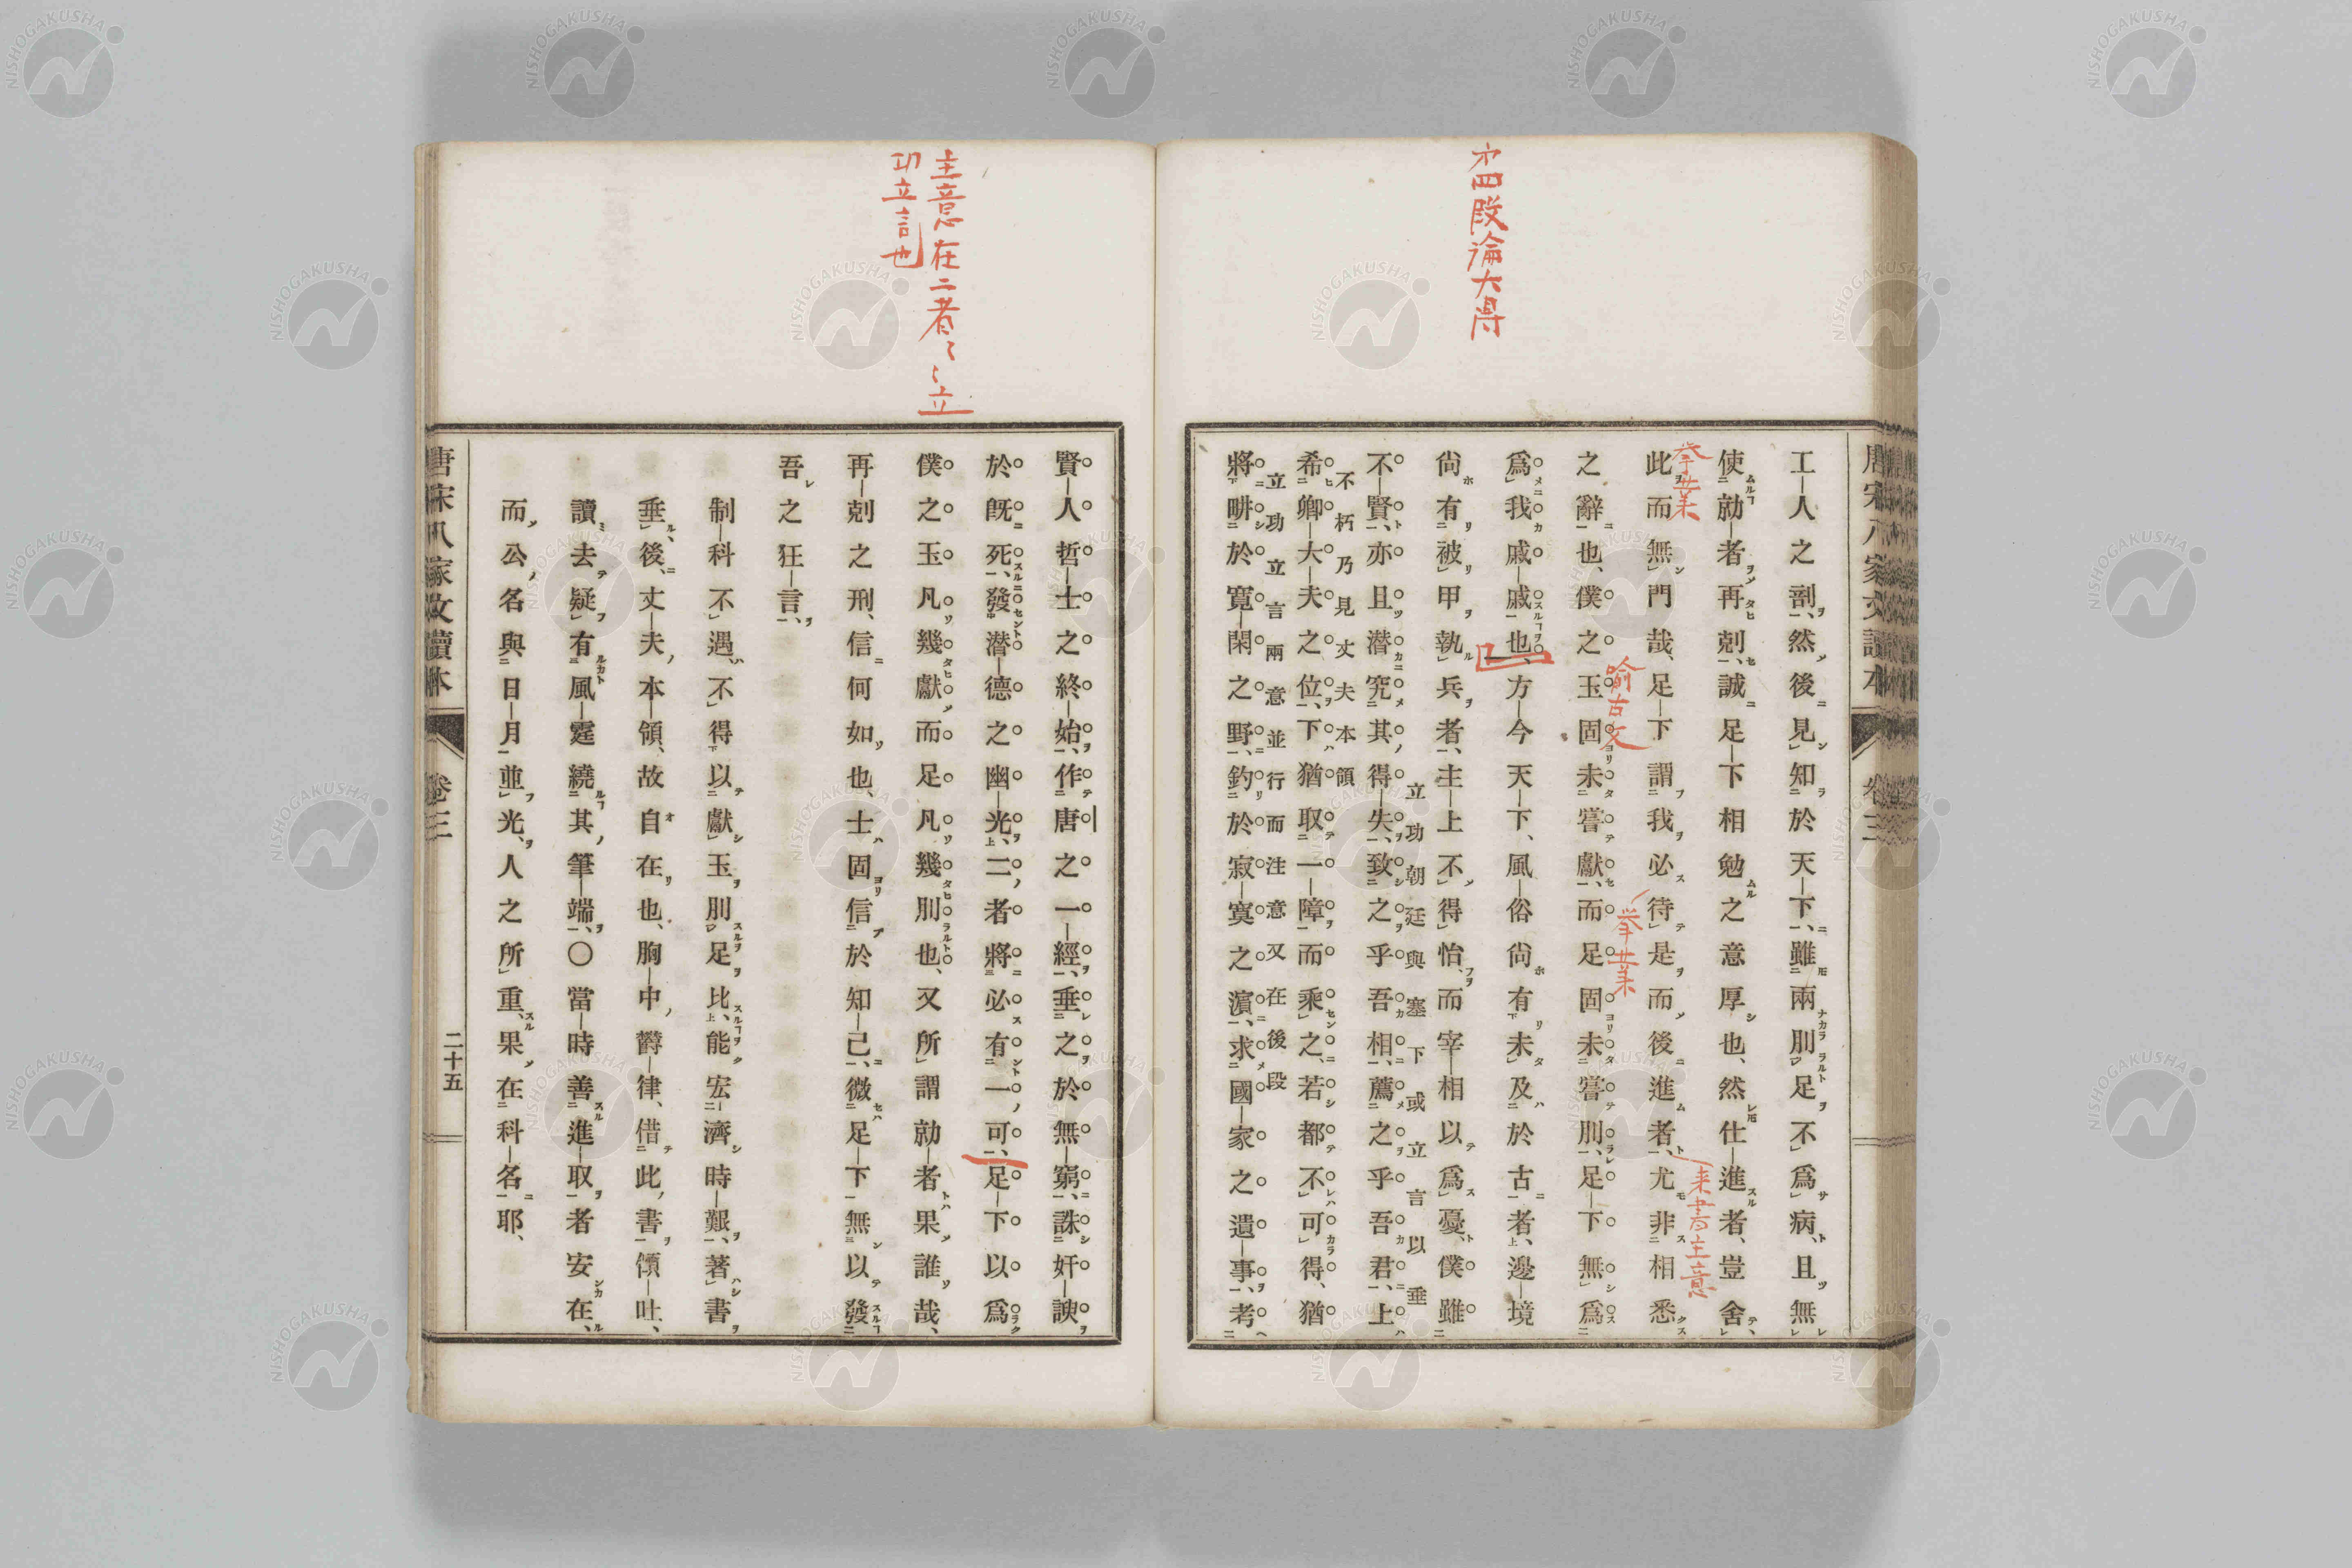 唐宋八家文讀本
卷三
第四段論大得
工人之剖、然後見知於天下、雖兩刖足不爲病、且無
使勍者再剋、誠足下相勉之意厚也、然仕進者、豈舍
擧業
此而無門哉、足下謂我必待是而後進者、尤非相悉
擧業
來書主意
之辭也、僕之玉固未嘗獻、而足固未嘗刖、足下無爲
喩古文
爲我戚戚也、方今天下、風俗尙有未及於古者、邊境
尙有被甲執兵者、主上不得怡、而宰相以爲憂、僕雖
立功朝廷與塞下或立言以垂
不賢、亦且潛究其得失、致之乎吾相、薦之乎吾君、上
不朽乃見丈夫本領
希卿大夫之位、下猶取一障而乘之、若都不可得、猶
立功立言兩意並行而注意又在後段
將畊於寬閑之野、釣於寂寞之濵、求國家之遺事、考
主意在二者々々立
功立言也
賢人哲士之終始、作唐之一經、垂之於無窮、誅奸諛
於旣死、發潛德之幽光、二者將必有一可、足下以爲
僕之玉凡幾獻而足凡幾刖也、又所謂勍者果誰哉、
再剋之刑、信何如也、士固信於知己、微足下無以發
吾之狂言、
制科不遇不得以獻玉刖足比、能宏濟時艱、著書
垂後、丈夫本領、故自在也、胸中欝律、借此書傾吐、
讀去疑有風霆繞其筆端、〇當時善進取者安在、
而公名與日月並光、人之所重、果在科名耶、
唐宋八家文讀本
卷三
二十五
NISHOGAKUSHA